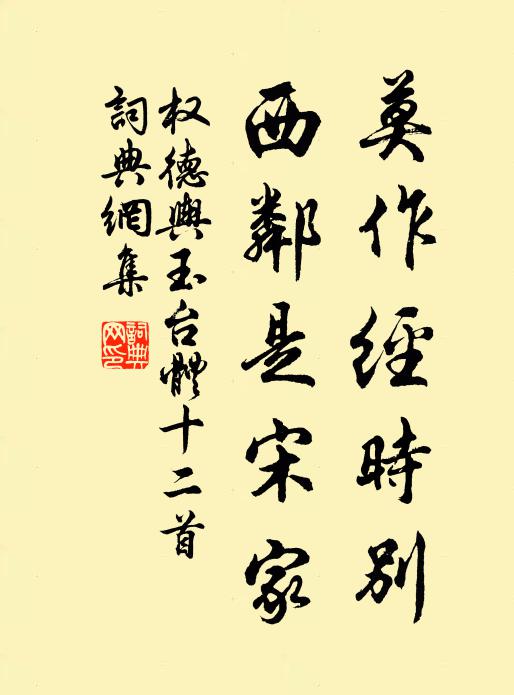 莫作經時別
西鄰是宋家
权德輿玉台體十二首
詞典網集
詞典
网印